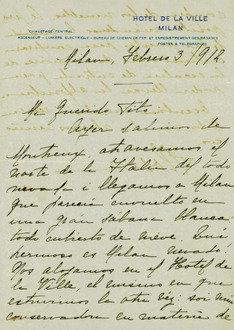 HOTEL DE LA VILLE
MILAN
CHAUFFAGE CENTRAL
ASCENSEUR - LUMIÈRE ELECTRIQUE - BUREAU DE CHEMIN DE FER ET ENREGISTREMENT DES BAGAGES
POSTES & TELEGRAPHES
Milan, Febrero 3/912
Mi Querido Tito
Ayer salimos de
Montreux atravesamos el
norte de la Italia del todo
nevada i llegamos a Milan
que parecia envuelta en
una gran sábana blanca
todo cubierto de nieve. Qué
hermoso es Milan nevado!
Nos alojamos en el Hotel de
la Ville, el mismo en que
estuvimos la otra vez: soi mui
conservador en materia de